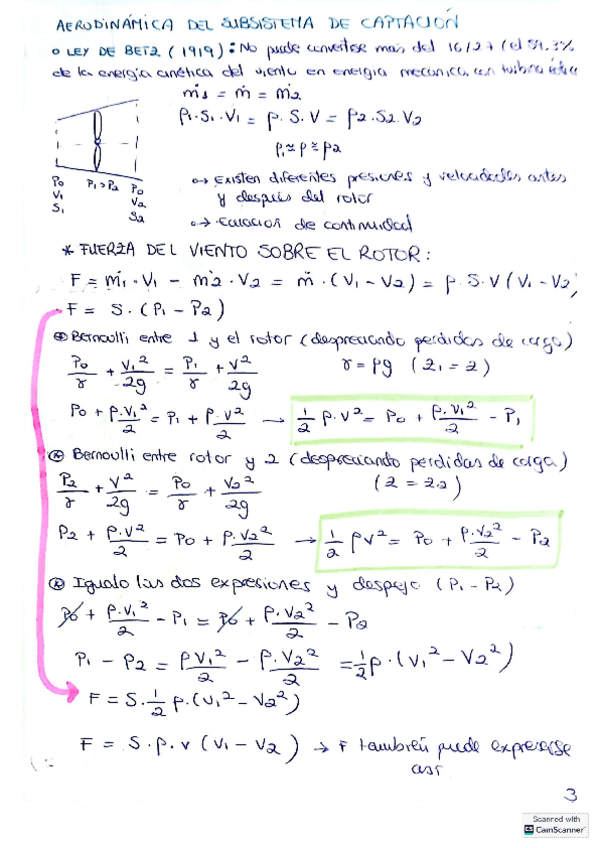 AERODINÁMICA DEL SUBSISTEMA DE CAPTACIÓN
o LEY DE BETZ (1919): No puede convertirse más del 16/27 (el 59.3%
de la energía cinética del viento en energía mecánica con turbina eólica
ṁ1 = ṁ = ṁ2
ρ1·S1·V1 = ρ·S·V = ρ2·S2·V2
ρ1 ≈ ρ ≈ ρ2
P0 P1>P2 P0
V1 V2
S1 S2
o→ Existen diferentes presiones y velocidades antes
y después del rotor
o→ Ecuación de continuidad
* FUERZA DEL VIENTO SOBRE EL ROTOR:
F = ṁ1·V1 − ṁ2·V2 = ṁ·(V1 − V2) = ρ·S·V(V1 − V2)
F = S·(P1 − P2)
Bernoulli entre 1 y el rotor (despreciando perdidas de carga)
P0/γ + V1²/2g = P1/γ + V²/2g γ = ρg (z1 = z)
P0 + ρ·V1²/2 = P1 + ρ·V²/2 → 1/2 ρ·V² = P0 + ρ·V1²/2 − P1
Bernoulli entre rotor y 2 (despreciando perdidas de carga)
P2/γ + V²/2g = P0/γ + V2²/2g (z = z2)
P2 + ρ·V²/2 = P0 + ρ·V2²/2 → 1/2 ρV² = P0 + ρ·V2²/2 − P2
Igualo las dos expresiones y despejo (P1 − P2)
P0 + ρ·V1²/2 − P1 = P0 + ρ·V2²/2 − P2
P1 − P2 = ρV1²/2 − ρ·V2²/2 = 1/2 ρ·(V1² − V2²)
F = S·1/2 ρ·(V1² − V2²)
F = S·ρ·V(V1 − V2) → F también puede expresarse
así
3
Scanned with
CS CamScanner